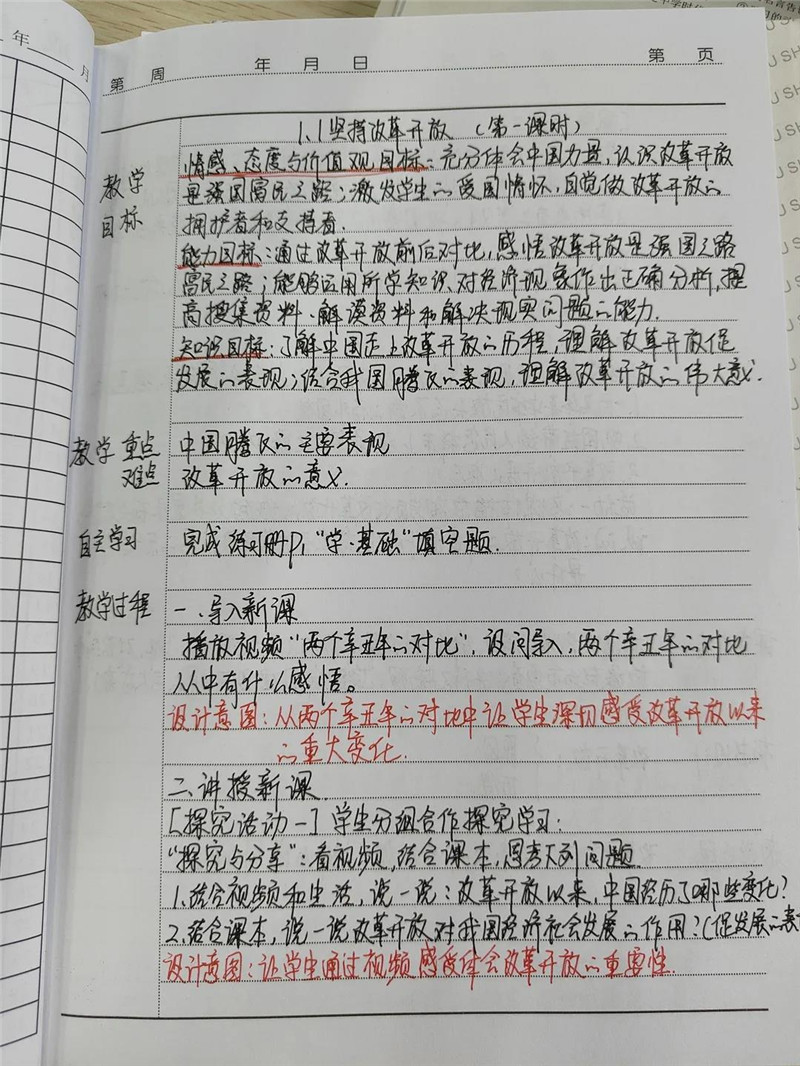 年 月
第 周 年 月 日 第 页
1.1坚持改革开放 (第一课时)
教学
目标
情感、态度与价值观目标：充分体会中国力量，认识改革开放
是强国富民之路；激发学生的爱国情怀，自觉做改革开放的
拥护者和支持者.
能力目标：通过改革开放前后对比，感悟改革开放是强国之路
富民之路；能够运用所学知识对经济现象作出正确分析，提
高搜集资料、解读资料和解决现实问题的能力.
知识目标：了解中国走上改革开放的历程，理解改革开放促
发展的表现；结合我国腾飞的表现，理解改革开放的伟大意义.
教学 重点 中国腾飞的主要表现
难点 改革开放的意义.
自主学习 完成练习册P1"学·基础"填空题.
教学过程 一、导入新课
播放视频"两个辛丑年的对比"，设问导入，两个辛丑年的对比
从中有什么感悟。
设计意图：从两个辛丑年的对比中让学生深切感受改革开放以来
的重大变化.
二、讲授新课
[探究活动一] 学生分组合作探究学习：
"探究与分享"：看视频，结合课本，思考下列问题.
1.结合视频和生活，说一说：改革开放以来，中国经历了哪些变化？
2.结合课本，说一说改革开放对我国经济社会发展的作用？(促发展的表
设计意图：让学生通过视频感受体会改革开放的重要性.